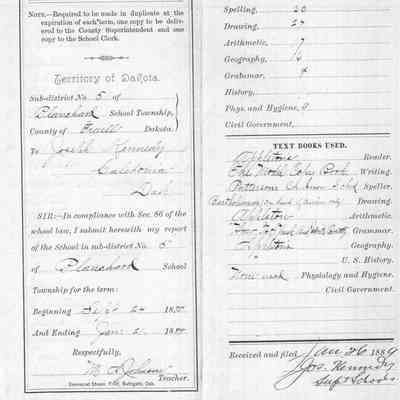 NOTE.—Required to be made in duplicate at the
expiration of each term, one copy to be deliv-
ered to the County Superintendent and one
copy to the School Clerk.
Territory of Dakota.
Sub-district No. 5 of
Blanchard School Township,
County of Traill Dakota.
To Joseph Kennedy
Caledonia
Dak
SIR:—In compliance with Sec. 86 of the
school law, I submit herewith my report
of the School in sub-district No. 5
of Blanchard School
Township for the term:
Beginning Sept 24 18
And Ending Jan 18
Respectfully,
M Teacher.
Spelling, 20
Drawing, 27
Arithmetic,
Geography,
Grammar,
History,
Phys. and Hygiene,
Civil Government,
TEXT BOOKS USED.
Appletons Reader.
The Model Copy Book Writing.
Pattersons Speller.
Bartholomew Drawing.
Appleton Arithmetic.
Grammar.
Appletons Geography.
U. S. History.
None used Physiology and Hygiene.
Civil Government.
Received and filed Jan 26 1889
Jos. Kennedy
Supt Schools